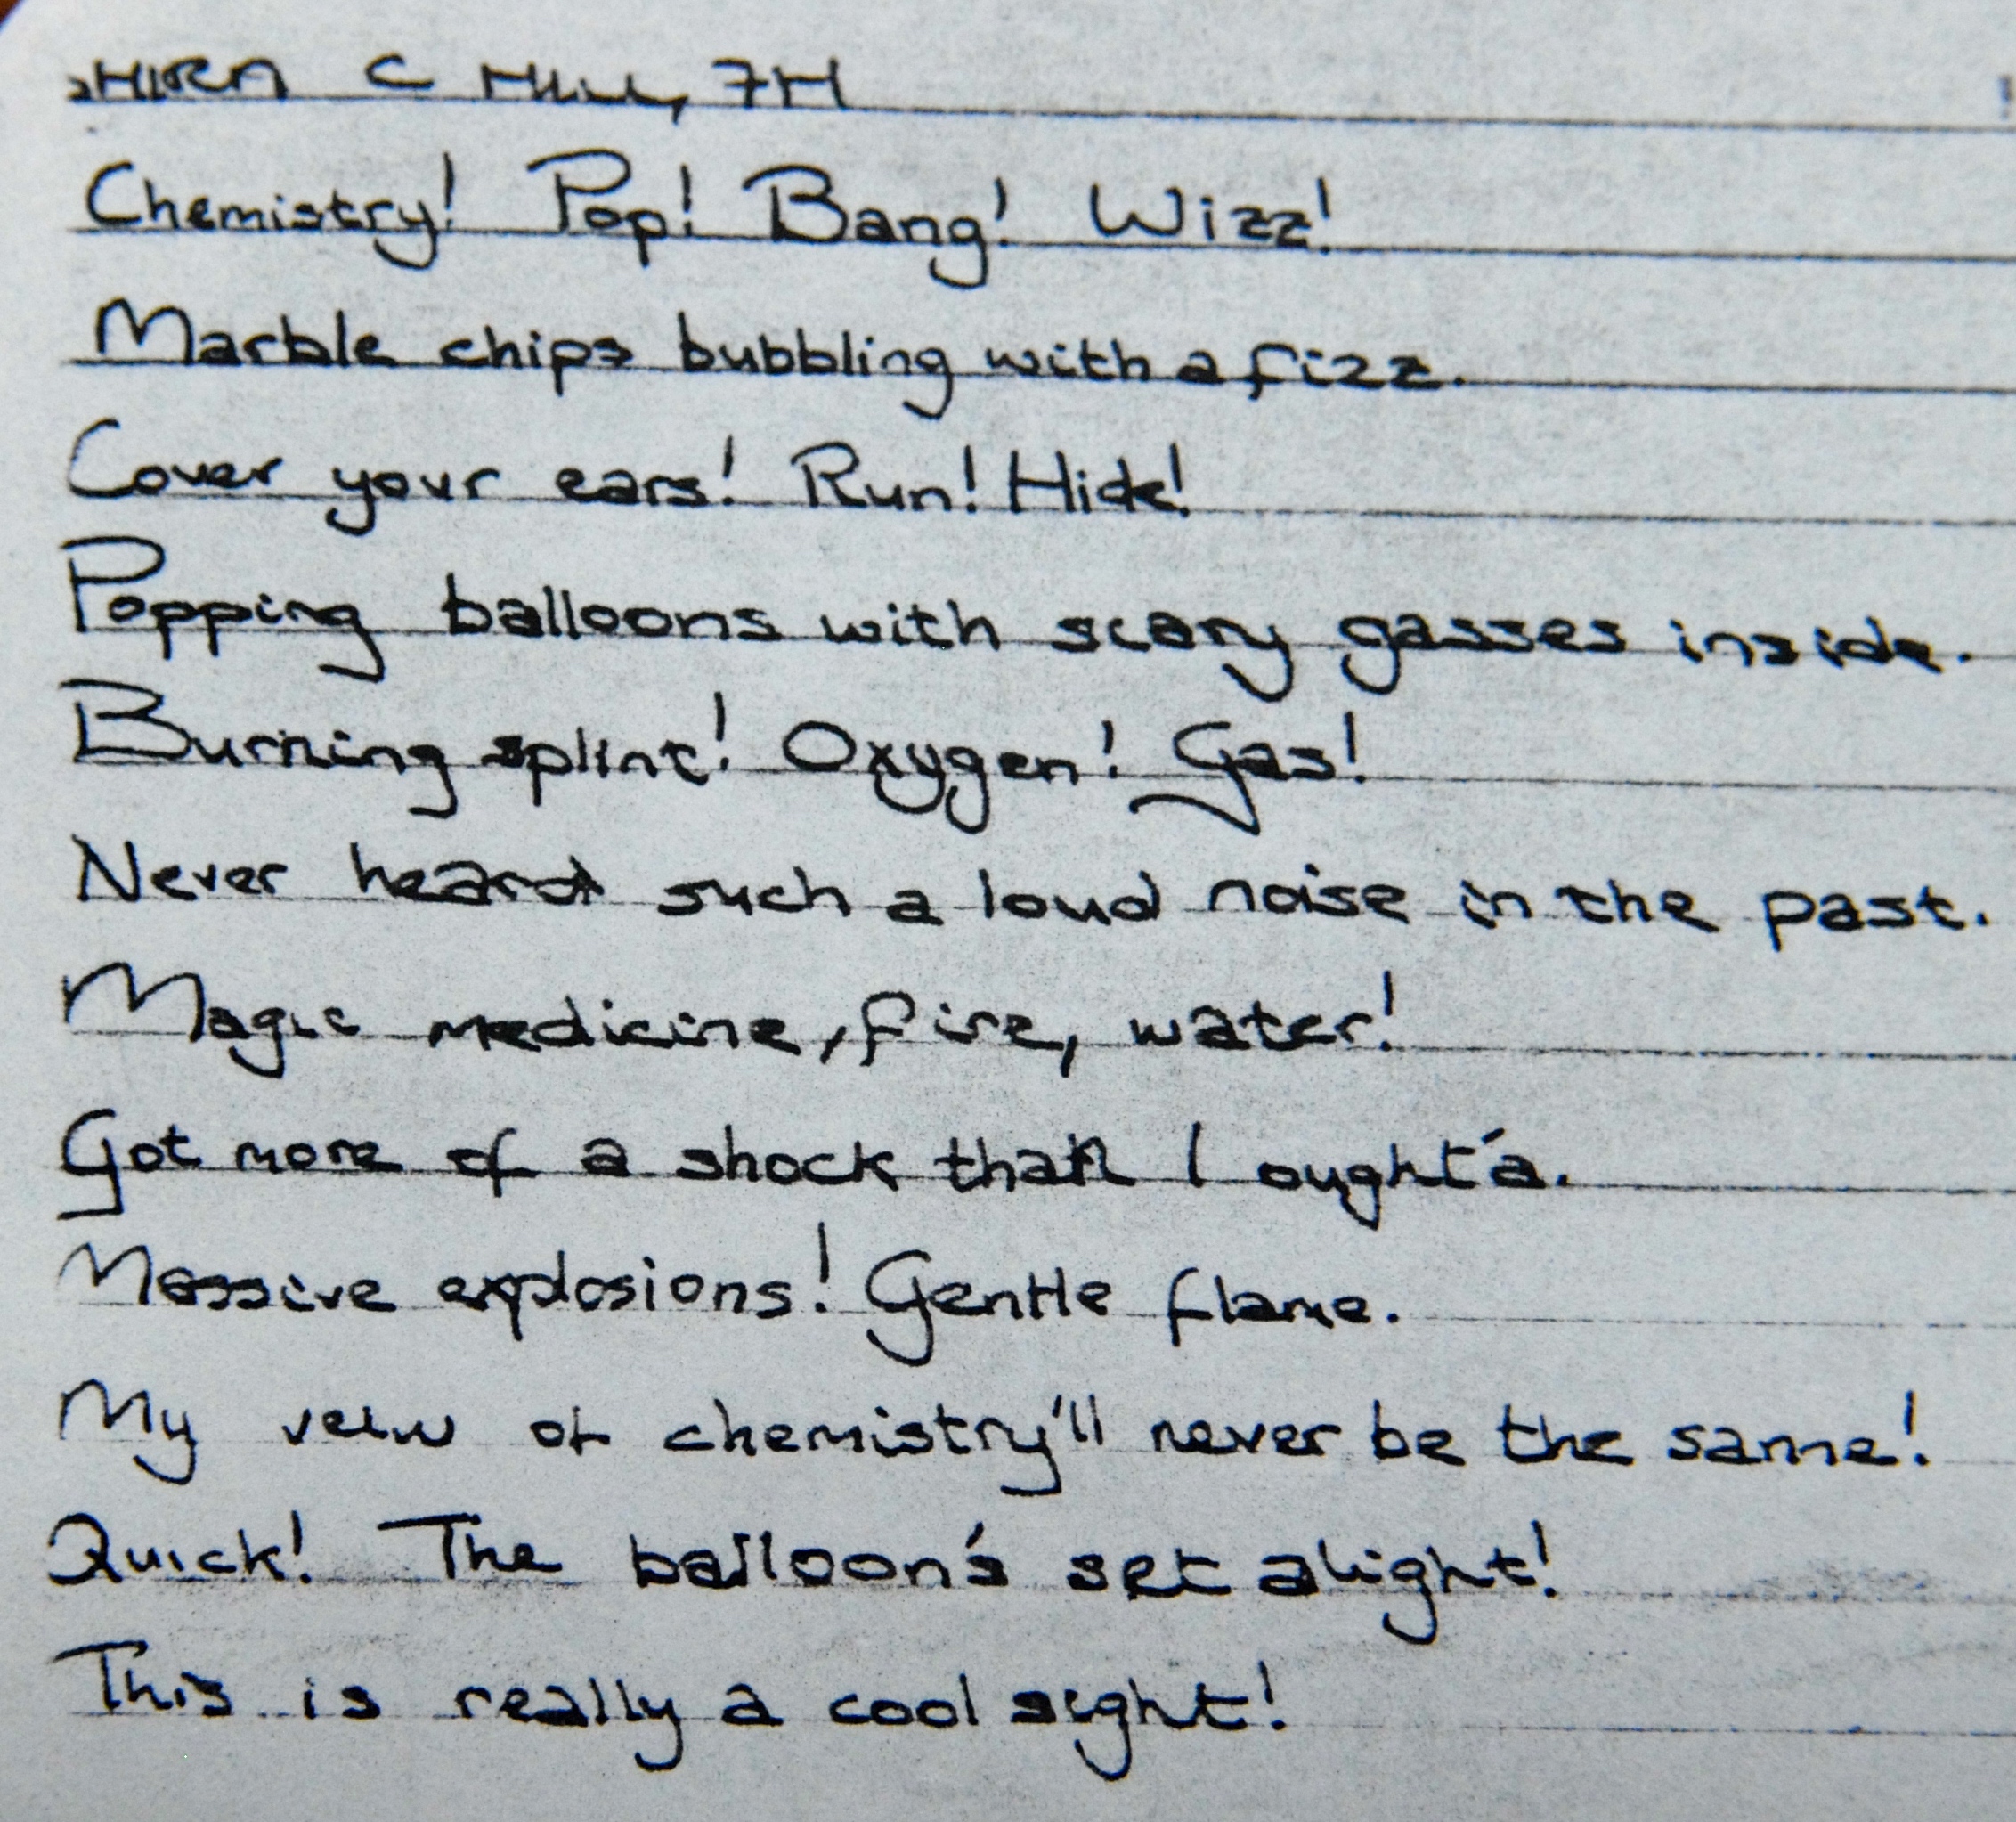 7H
Chemistry! Pop! Bang! Wizz!
Marble chips bubbling with a fizz.
Cover your ears! Run! Hide!
Popping balloons with scary gasses inside.
Burning splint! Oxygen! Gas!
Never heard such a loud noise in the past.
Magic medicine, fire, water!
Got more of a shock than I ought'a.
Massive explosions! Gentle flame.
My veiw of chemistry'll never be the same!
Quick! The balloon's set alight!
This is really a cool sight!